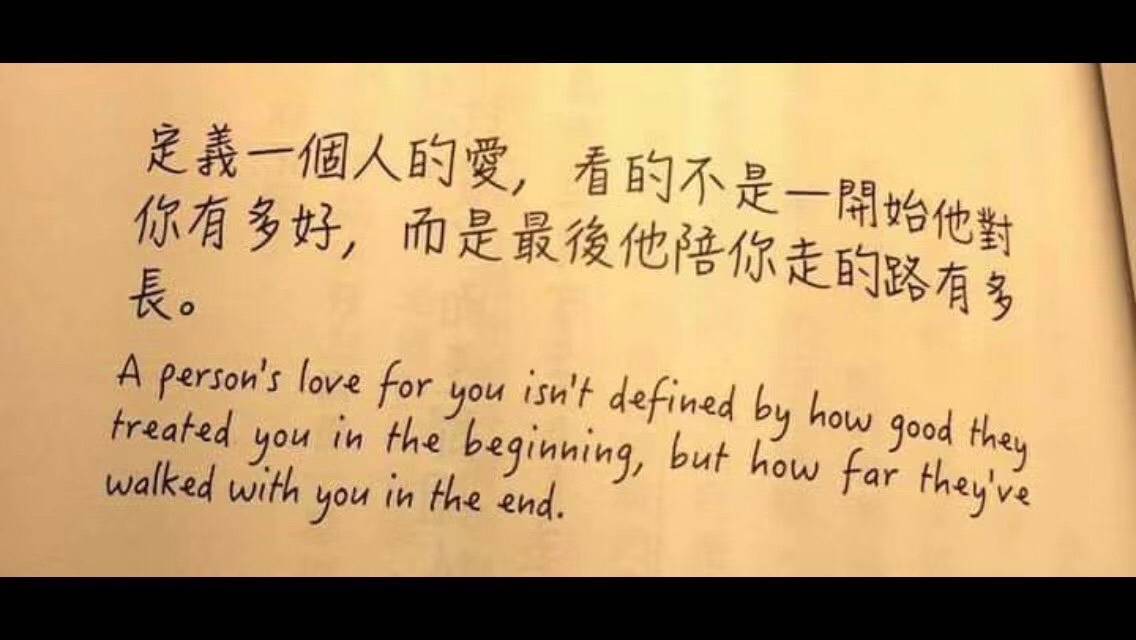 定義一個人的愛，看的不是一開始他對
你有多好，而是最後他陪你走的路有多
長。
A person's love for you isn't defined by how good they
treated you in the beginning, but how far they've
walked with you in the end.